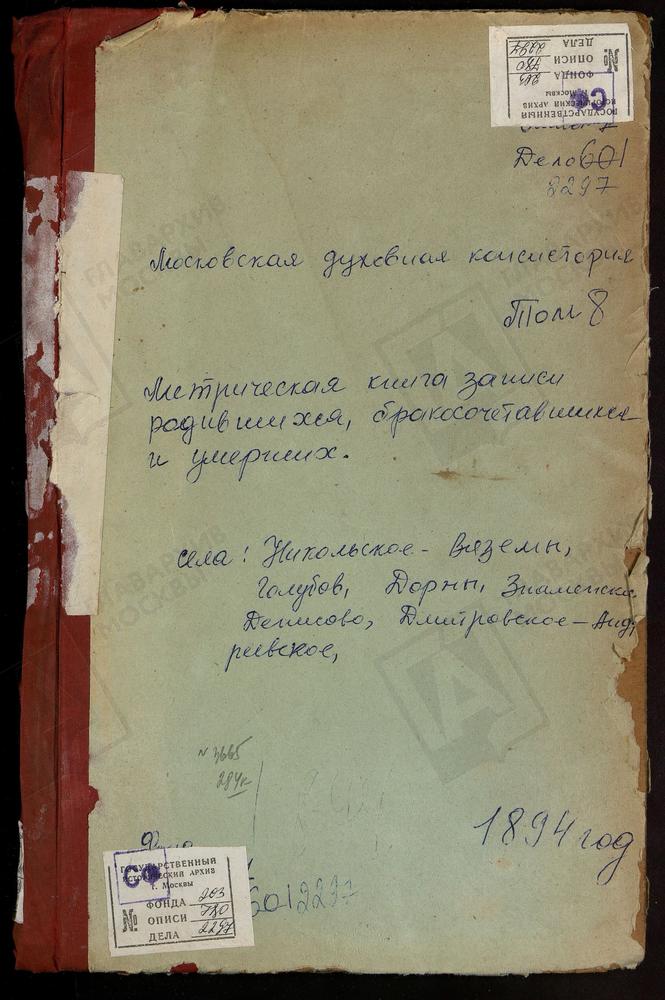 ГОСУДАРСТВЕННЫЙ
ИСТОРИЧЕСКИЙ АРХИВ
г. МОСКВЫ
№ ФОНДА 203
ОПИСИ 780
ДЕЛА 2297
СФ
Дело 601
2297
Московская духовная консистория
Том 8
Метрическая книга записи
родившихся, бракосочетавшихся
и умерших.
села: Никольское-Вяземы,
Голубов, Дорны, Знаменско
Денисово, Дмитровское-Анд
реевское,
N 3665
284к
1894 год
6012297
ГОСУДАРСТВЕННЫЙ
ИСТОРИЧЕСКИЙ АРХИВ
г. Москвы
СФ
№ ФОНДА 203
ОПИСИ 780
ДЕЛА 2297
ГЛАВАРХИВ
МОСКВЫ
ГЛАВАРХИВ
МОСКВЫ